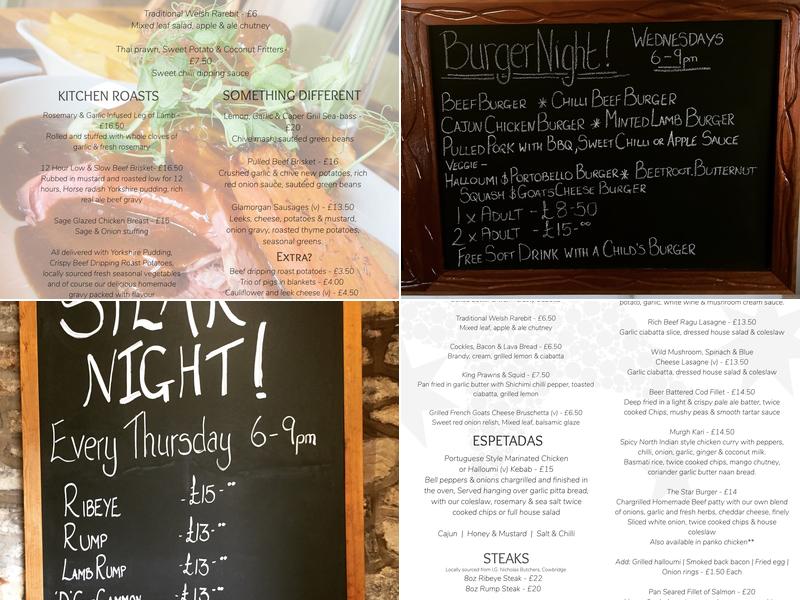 Traditional Welsh Rarebit - £6
Mixed leaf salad, apple & ale chutney
Thai prawn, Sweet Potato & Coconut Fritters-
£7.50
Sweet chilli dipping sauce
KITCHEN ROASTS
Rosemary & Garlic Infused Leg of Lamb -
£16.50
Rolled and stuffed with whole cloves of
garlic & fresh rosemary
12 Hour Low & Slow Beef Brisket- £16.50
Rubbed in mustard and roasted low for 12
hours, Horse radish Yorkshire pudding, rich
real ale beef gravy
Sage Glazed Chicken Breast - £15
Sage & Onion stuffing
All delivered with Yorkshire Pudding,
Crispy Beef Dripping Roast Potatoes,
locally sourced fresh seasonal vegetables
and of course our delicious homemade
gravy packed with flavour
SOMETHING DIFFERENT
Lemon, Garlic & Caper Grill Sea-bass -
£20
Chive mash, sautéed green beans
Pulled Beef Brisket - £16
Crushed garlic & chive new potatoes, rich
red onion sauce, sautéed green beans
Glamorgan Sausages (v) - £13.50
Leeks, cheese, potatoes & mustard,
onion gravy, roasted thyme potatoes,
seasonal greens
EXTRA?
Beef dripping roast potatoes - £3.50
Trio of pigs in blankets - £4.00
Cauliflower and leek cheese (v) - £4.50
Burger Night! WEDNESDAYS
6-9pm
BEEF BURGER * CHILLI BEEF BURGER
CAJUN CHICKEN BURGER * MINTED LAMB BURGER
PULLED PORK WITH BBQ, SWEET CHILLI OR APPLE SAUCE
VEGGIE -
HALLOUMI & PORTOBELLO BURGER * BEETROOT, BUTTERNUT
SQUASH & GOATS CHEESE BURGER
1 x ADULT - £8-50
2 x ADULT - £15-00
FREE SOFT DRINK WITH A CHILD'S BURGER
STEAK
NIGHT!
Every Thursday 6-9pm
RIBEYE -£15-00
RUMP -£13-00
LAMB RUMP -£13-00
GAMMON
Traditional Welsh Rarebit - £6.50
Mixed leaf, apple & ale chutney
Cockles, Bacon & Lava Bread - £6.50
Brandy, cream, grilled lemon & ciabatta
King Prawns & Squid - £7.50
Pan fried in garlic butter with Shichimi chilli pepper, toasted
ciabatta, grilled lemon
Grilled French Goats Cheese Bruschetta (v) - £6.50
Sweet red onion relish, Mixed leaf, balsamic glaze
ESPETADAS
Portuguese Style Marinated Chicken
or Halloumi (v) Kebab - £15
Bell peppers & onions chargrilled and finished in
the oven, Served hanging over garlic pitta bread,
with our coleslaw, rosemary & sea salt twice
cooked chips or full house salad
Cajun | Honey & Mustard | Salt & Chilli
STEAKS
Locally sourced from I.G. Nicholas Butchers, Cowbridge
8oz Ribeye Steak - £22
8oz Rump Steak - £20
potato, garlic, white wine & mushroom cream sauce.
Rich Beef Ragu Lasagne - £13.50
Garlic ciabatta slice, dressed house salad & coleslaw
Wild Mushroom, Spinach & Blue
Cheese Lasagne (v) - £13.50
Garlic ciabatta, dressed house salad & coleslaw
Beer Battered Cod Fillet - £14.50
Deep fried in a light & crispy pale ale batter, twice
cooked Chips, mushy peas & smooth tartar sauce
Murgh Kari - £14.50
Spicy North Indian style chicken curry with peppers,
chilli, onion, garlic, ginger & coconut milk.
Basmati rice, twice cooked chips, mango chutney,
coriander garlic butter naan bread.
The Star Burger - £14
Chargrilled Homemade Beef patty with our own blend
of onions, garlic and fresh herbs, cheddar cheese, finely
Sliced white onion, twice cooked chips & house
coleslaw
Also available in panko chicken**
Add: Grilled halloumi | Smoked back bacon | Fried egg |
Onion rings - £1.50 Each
Pan Seared Fillet of Salmon - £20